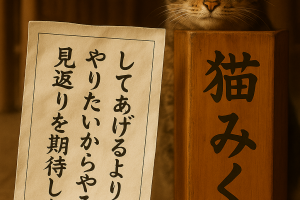 してあげるより
やりたいからやる
見返りを期待し
猫みく